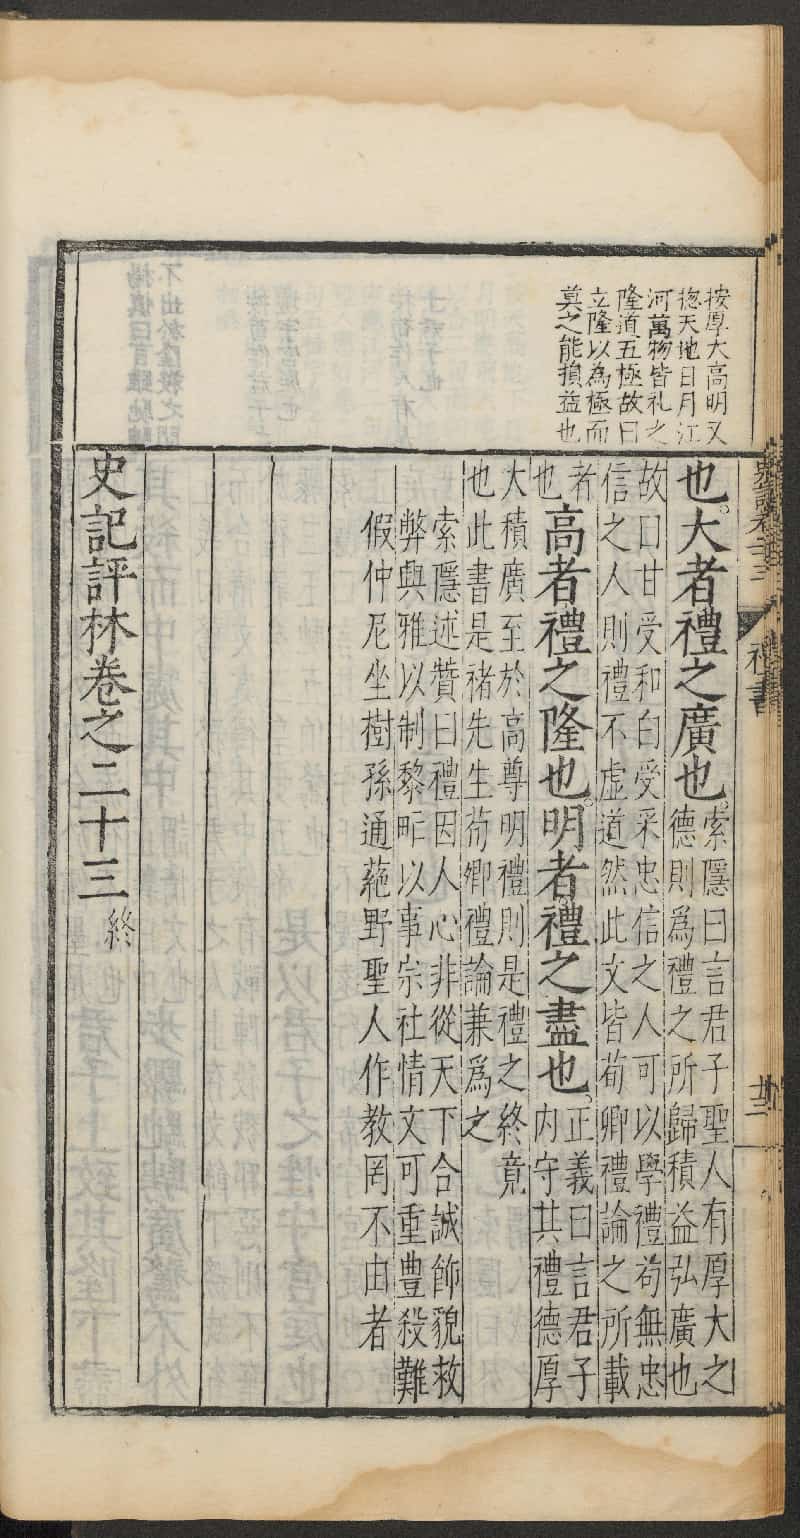 按厚大高明又
揔天地日月江
河萬物皆礼之
隆道五極故曰
立隆以為極而
莫之能損益也
也大者禮之廣也索隱曰言君子聖人有厚大之
德則爲禮之所歸積益弘廣也
故曰甘受和白受采忠信之人可以學禮苟無忠
信之人則禮不虛道然此文皆荀卿禮論之所載
者
也高者禮之隆也明者禮之盡也正義曰言君子
内守其禮德厚
大積廣至於高尊明禮則是禮之終竟
也此書是褚先生荀卿禮論兼爲之
索隱述贊曰禮因人心非從天下合誠飾貌救
弊興雅以制黎甿以事宗社情文可重豊殺難
假仲尼坐樹孫通蕝野聖人作教罔不由者
史記評林卷之二十三終
禮書
廿三